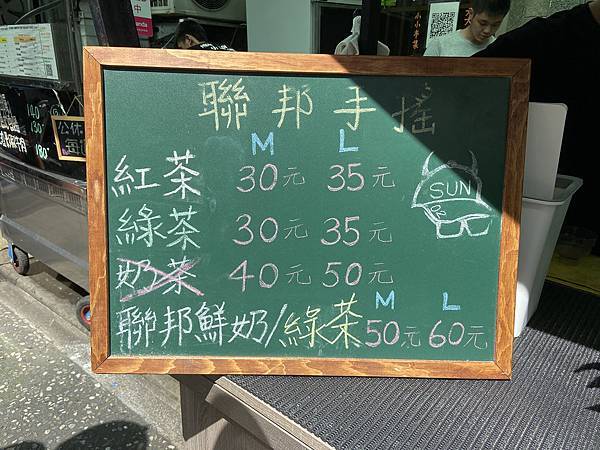 聯邦手搖
M L
紅茶 30元 35元
綠茶 30元 35元
奶茶 40元 50元
M L
聯邦鮮奶/綠茶 50元 60元
SUN
140
130
180
公休